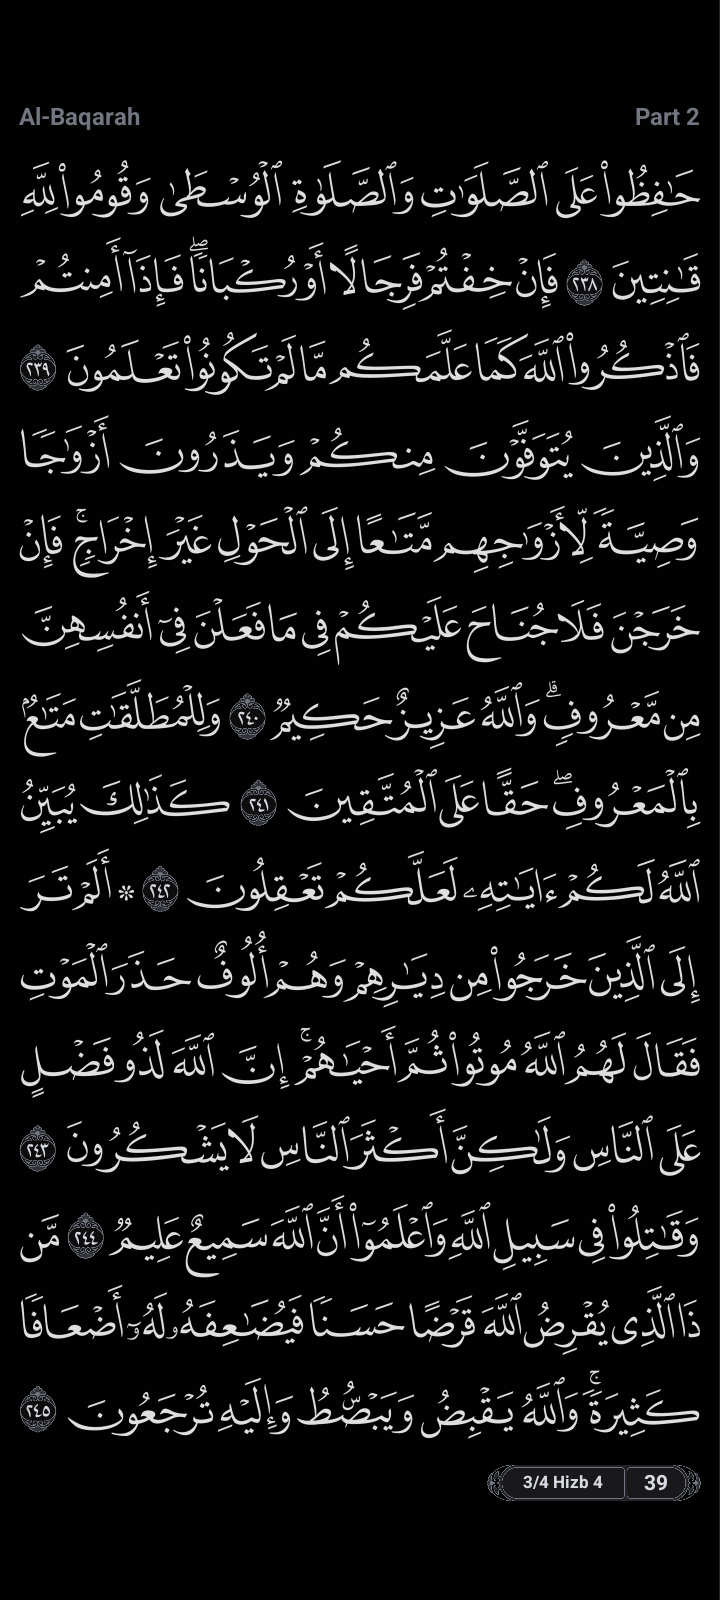 Al-Baqarah
Part 2
حَٰفِظُوا۟ عَلَى ٱلصَّلَوَٰتِ وَٱلصَّلَوٰةِ ٱلْوُسْطَىٰ وَقُومُوا۟ لِلَّهِ
قَٰنِتِينَ ٢٣٨ فَإِنْ خِفْتُمْ فَرِجَالًا أَوْ رُكْبَانًا ۖ فَإِذَآ أَمِنتُمْ
فَٱذْكُرُوا۟ ٱللَّهَ كَمَا عَلَّمَكُم مَّا لَمْ تَكُونُوا۟ تَعْلَمُونَ ٢٣٩
وَٱلَّذِينَ يُتَوَفَّوْنَ مِنكُمْ وَيَذَرُونَ أَزْوَٰجًا
وَصِيَّةً لِّأَزْوَٰجِهِم مَّتَٰعًا إِلَى ٱلْحَوْلِ غَيْرَ إِخْرَاجٍ ۚ فَإِنْ
خَرَجْنَ فَلَا جُنَاحَ عَلَيْكُمْ فِى مَا فَعَلْنَ فِىٓ أَنفُسِهِنَّ
مِن مَّعْرُوفٍ ۗ وَٱللَّهُ عَزِيزٌ حَكِيمٌ ٢٤٠ وَلِلْمُطَلَّقَٰتِ مَتَٰعٌۢ
بِٱلْمَعْرُوفِ ۖ حَقًّا عَلَى ٱلْمُتَّقِينَ ٢٤١ كَذَٰلِكَ يُبَيِّنُ
ٱللَّهُ لَكُمْ ءَايَٰتِهِۦ لَعَلَّكُمْ تَعْقِلُونَ ٢٤٢ ۞ أَلَمْ تَرَ
إِلَى ٱلَّذِينَ خَرَجُوا۟ مِن دِيَٰرِهِمْ وَهُمْ أُلُوفٌ حَذَرَ ٱلْمَوْتِ
فَقَالَ لَهُمُ ٱللَّهُ مُوتُوا۟ ثُمَّ أَحْيَٰهُمْ ۚ إِنَّ ٱللَّهَ لَذُو فَضْلٍ
عَلَى ٱلنَّاسِ وَلَٰكِنَّ أَكْثَرَ ٱلنَّاسِ لَا يَشْكُرُونَ ٢٤٣
وَقَٰتِلُوا۟ فِى سَبِيلِ ٱللَّهِ وَٱعْلَمُوٓا۟ أَنَّ ٱللَّهَ سَمِيعٌ عَلِيمٌ ٢٤٤ مَّن
ذَا ٱلَّذِى يُقْرِضُ ٱللَّهَ قَرْضًا حَسَنًا فَيُضَٰعِفَهُۥ لَهُۥٓ أَضْعَافًا
كَثِيرَةً ۚ وَٱللَّهُ يَقْبِضُ وَيَبْصُۜطُ وَإِلَيْهِ تُرْجَعُونَ ٢٤٥
3/4 Hizb 4
39